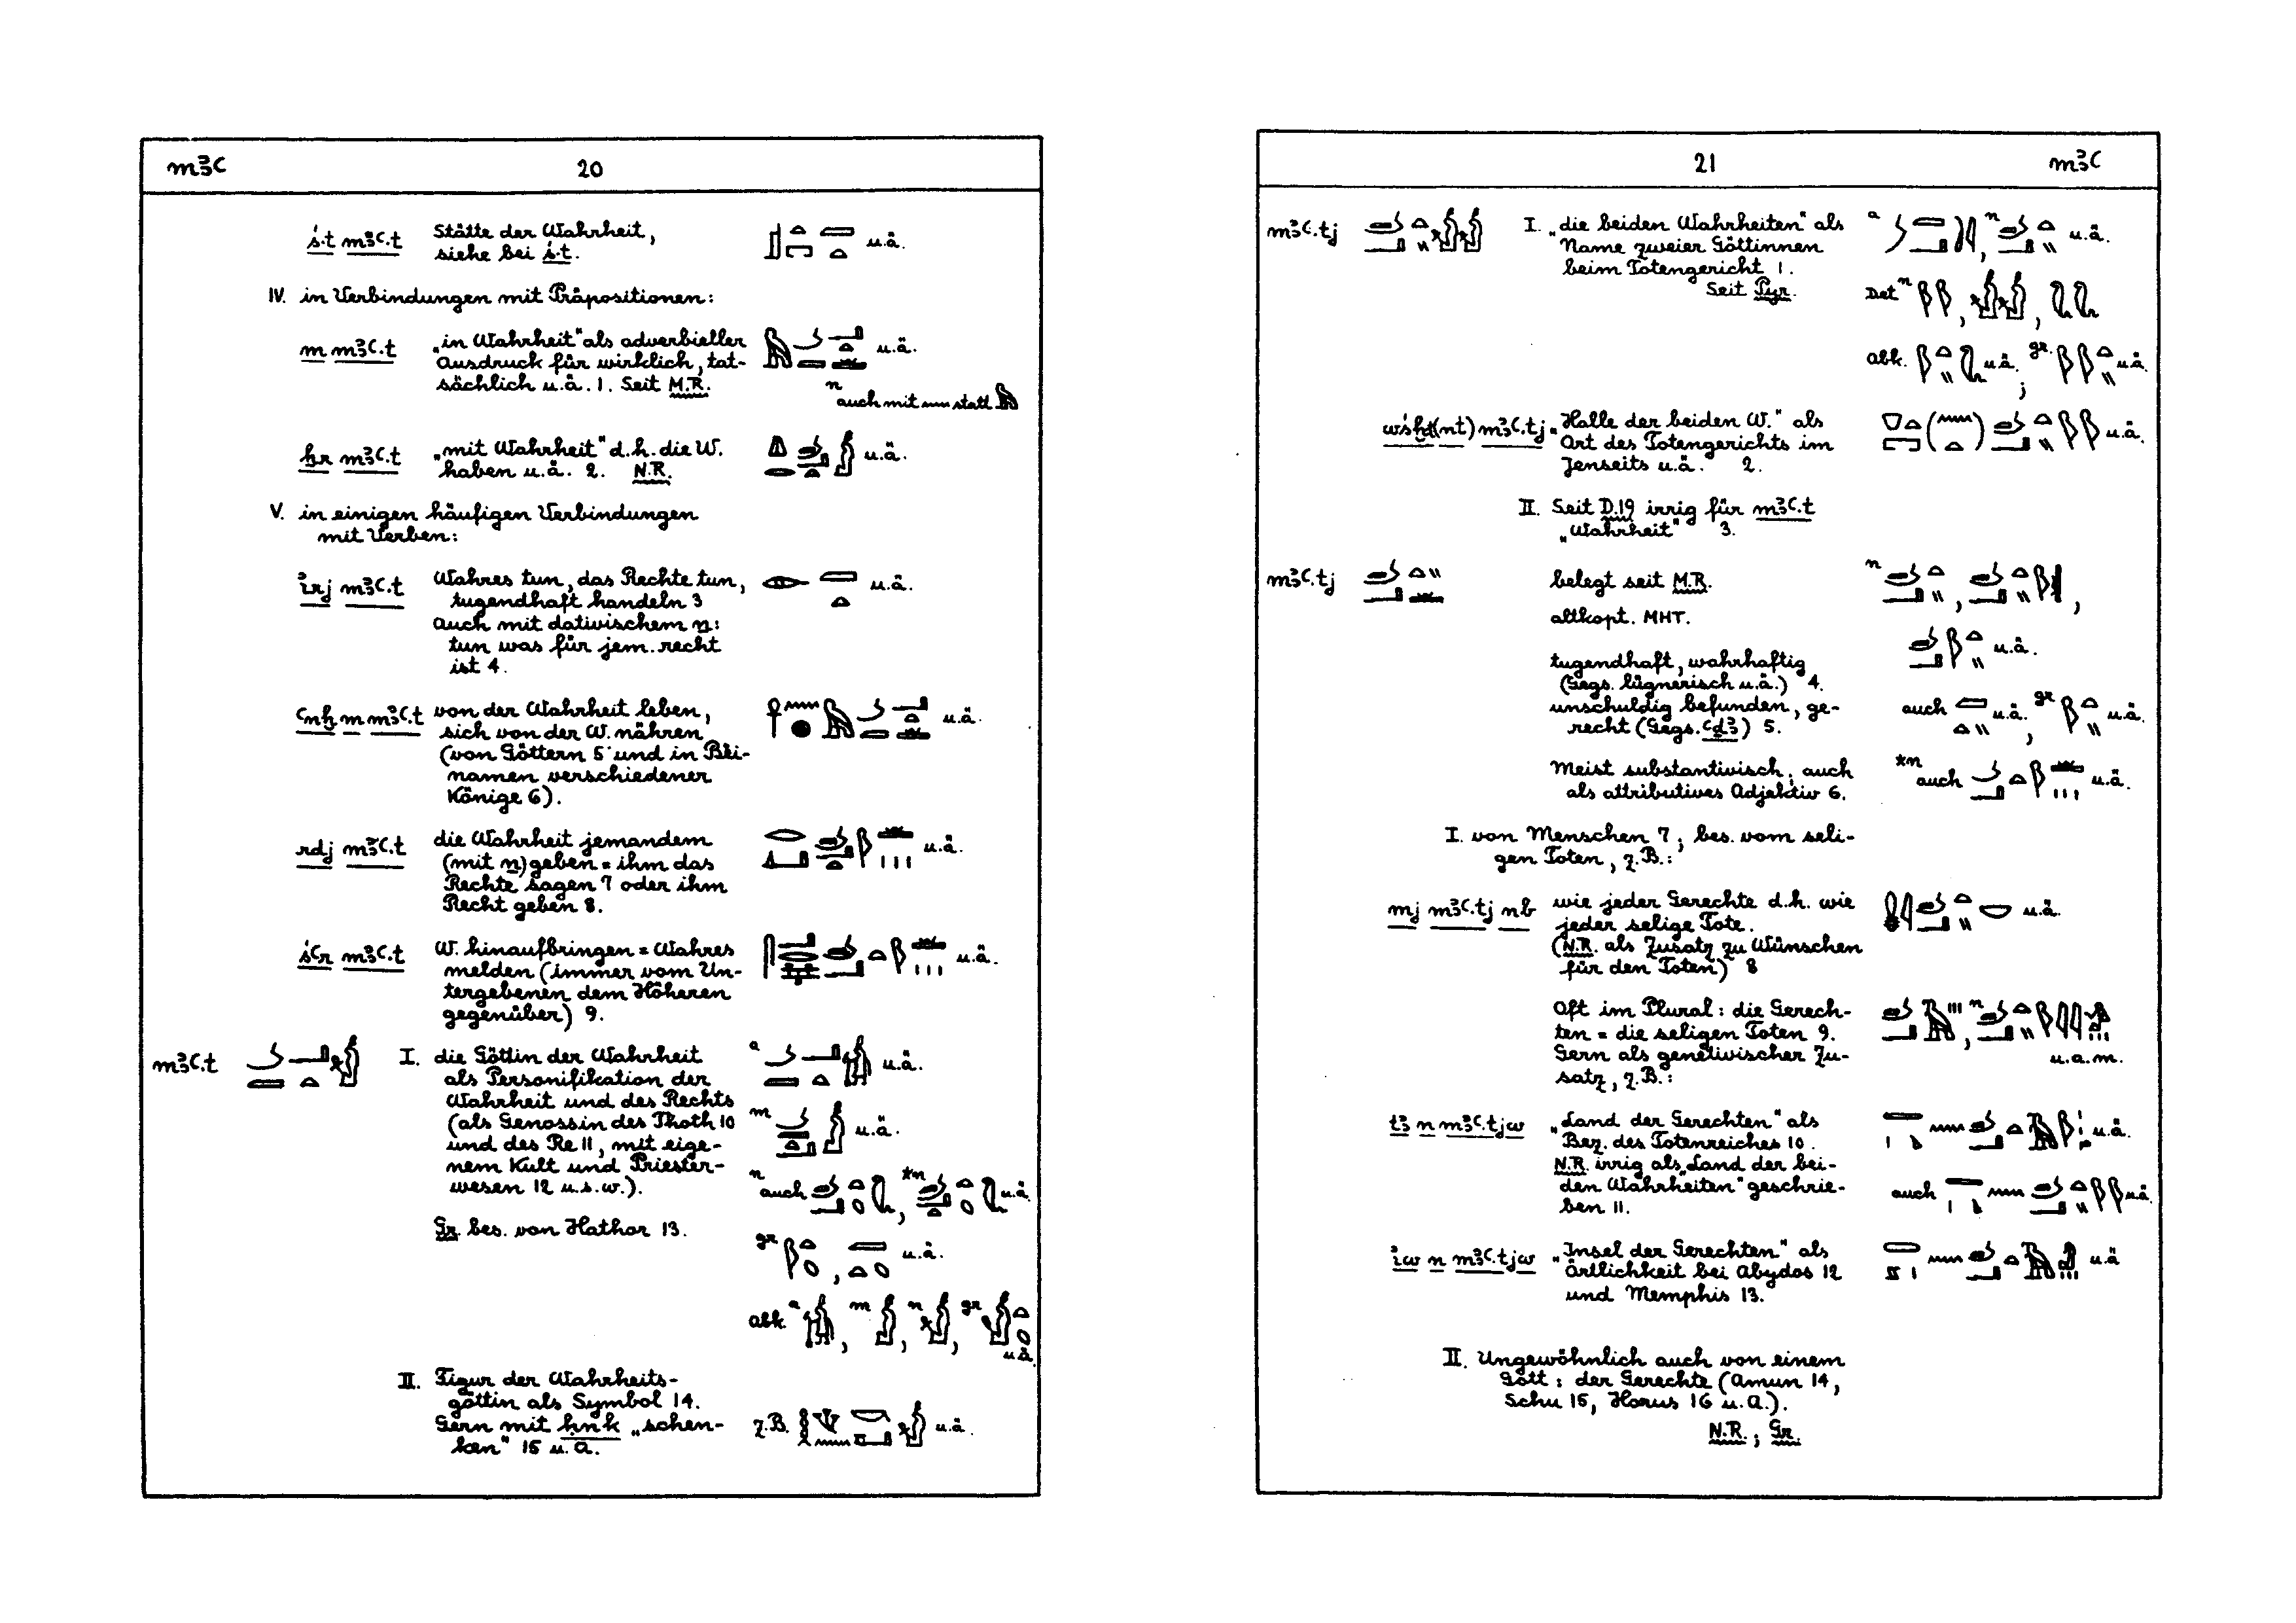 m3ꜥ 20
ś.t m3ꜥ.t Stätte der Wahrheit, u.ä.
siehe bei ś.t.
IV. in Verbindungen mit Präpositionen:
m m3ꜥ.t „in Wahrheit" als adverbieller u.ä.
Ausdruck für wirklich, tat-
sächlich u.ä. 1. Seit M.R. n
auch mit statt
ḫr m3ꜥ.t „mit Wahrheit" d.h. die W. u.ä.
haben u.ä. 2. N.R.
V. in einigen häufigen Verbindungen
mit Verben:
irj m3ꜥ.t Wahres tun, das Rechte tun, u.ä.
tugendhaft handeln 3
Auch mit dativischem n:
tun was für jem. recht
ist 4.
ꜥnḫ m m3ꜥ.t von der Wahrheit leben, u.ä.
sich von der W. nähren
(von Göttern 5 und in Bei-
namen verschiedener
Könige 6).
rdj m3ꜥ.t die Wahrheit jemandem u.ä.
(mit n) geben = ihm das
Rechte sagen 7 oder ihm
Recht geben 8.
śꜥr m3ꜥ.t W. hinaufbringen = Wahres u.ä.
melden (immer vom Un-
tergebenen dem Höheren
gegenüber) 9.
m3ꜥ.t I. die Göttin der Wahrheit a u.ä.
als Personifikation der
Wahrheit und des Rechts
(als Genossin des Thoth 10 m u.ä.
und des Re 11, mit eige-
nem Kult und Priester-
wesen 12 u.s.w.). n auch , *n u.ä.
Gr. bes. von Hathor 13.
gr , u.ä.
abk. a , m , n , gr
u.ä.
II. Figur der Wahrheits-
göttin als Symbol 14.
Gern mit ḥnk „schen- z.B. u.ä.
ken" 15 u.a.
21 m3ꜥ
m3ꜥ.tj I. „die beiden Wahrheiten" als a , n u.ä.
Name zweier Göttinnen
beim Totengericht 1.
Seit Pyr. Det n , ,
abk. u.ä. ; gr. u.ä.
wśḫt(nt) m3ꜥ.tj „Halle der beiden W." als u.ä.
Ort des Totengerichts im
Jenseits u.ä. 2.
II. Seit D.19 irrig für m3ꜥ.t
„Wahrheit" 3.
m3ꜥ.tj belegt seit M.R. n , ,
altkopt. ΜΗΤ.
u.ä.
tugendhaft, wahrhaftig
(Gegs. lügnerisch u.ä.) 4.
unschuldig befunden, ge- auch u.ä. , gr u.ä.
recht (Gegs. ꜥḏ3) 5.
Meist substantivisch; auch *n auch u.ä.
als attributives Adjektiv 6.
I. von Menschen 7; bes. vom seli-
gen Toten, z.B.:
mj m3ꜥ.tj nb wie jeder Gerechte d.h. wie u.ä.
jeder selige Tote.
(N.R. als Zusatz zu Wünschen
für den Toten) 8
Oft im Plural: die Gerech- , n
ten = die seligen Toten 9.
Gern als genetivischer Zu- u.a.m.
satz, z.B.:
t3 n m3ꜥ.tjw „Land der Gerechten" als u.ä.
Bez. des Totenreiches 10.
N.R. irrig als „Land der bei-
den Wahrheiten" geschrie- auch u.ä.
ben 11.
iw n m3ꜥ.tjw „Insel der Gerechten" als u.ä
Örtlichkeit bei Abydos 12
und Memphis 13.
II. Ungewöhnlich auch von einem
Gott: der Gerechte (Amun 14,
Schu 15, Horus 16 u.a.).
N.R.; Gr.